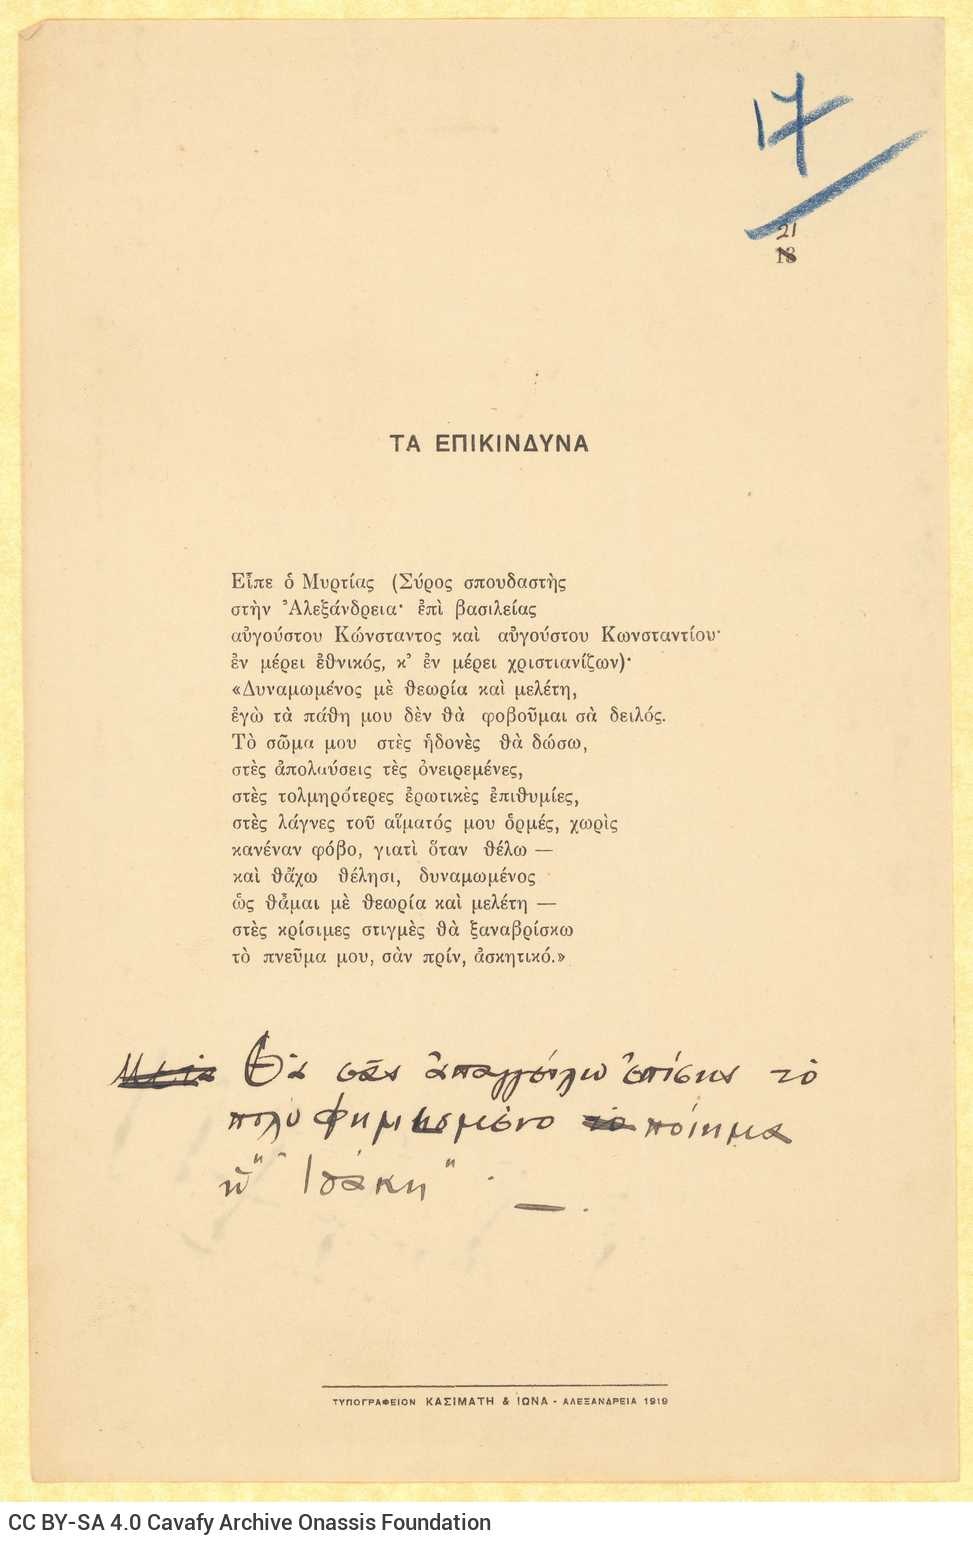 17
21
18
ΤΑ ΕΠΙΚΙΝΔΥΝΑ
Εἶπε ὁ Μυρτίας (Σύρος σπουδαστὴς
στὴν Ἀλεξάνδρεια· ἐπὶ βασιλείας
αὐγούστου Κώνσταντος καὶ αὐγούστου Κωνσταντίου·
ἐν μέρει ἐθνικός, κ’ ἐν μέρει χριστιανίζων)·
«Δυναμωμένος μὲ θεωρία καὶ μελέτη,
ἐγὼ τὰ πάθη μου δὲν θὰ φοβοῦμαι σὰ δειλός.
Τὸ σῶμα μου στὲς ἡδονὲς θὰ δώσω,
στὲς ἀπολαύσεις τὲς ὀνειρεμένες,
στὲς τολμηρότερες ἐρωτικὲς ἐπιθυμίες,
στὲς λάγνες τοῦ αἵματός μου ὁρμές, χωρὶς
κανέναν φόβο, γιατὶ ὅταν θέλω —
καὶ θἄχω θέλησι, δυναμωμένος
ὡς θἆμαι μὲ θεωρία καὶ μελέτη —
στὲς κρίσιμες στιγμὲς θὰ ξαναβρίσκω
τὸ πνεῦμα μου, σὰν πρίν, ἀσκητικό.»
Θὰ σᾶς ἀπαγγείλω ἐπίσης τὸ
πολυφημισμένο ποίημα
ἡ "Ἰθάκη". —.
ΤΥΠΟΓΡΑΦΕΙΟΝ ΚΑΣΙΜΑΤΗ & ΙΩΝΑ - ΑΛΕΞΑΝΔΡΕΙΑ 1919
CC BY-SA 4.0 Cavafy Archive Onassis Foundation